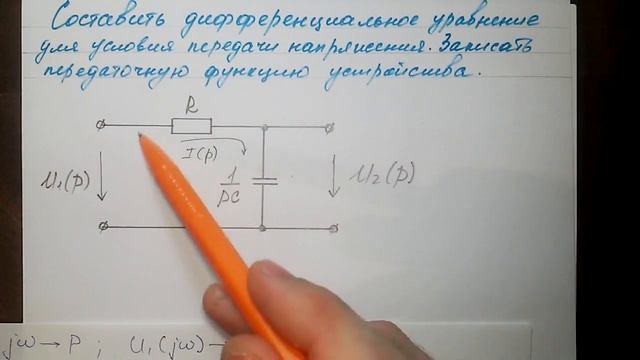 Составить дифференциальное уравнение
для условия передачи напряжения. Записать
передаточную функцию устройства.
R
I(p)
U₁(p)
1
pC
U₂(p)
jω → p ; U₁(jω) →